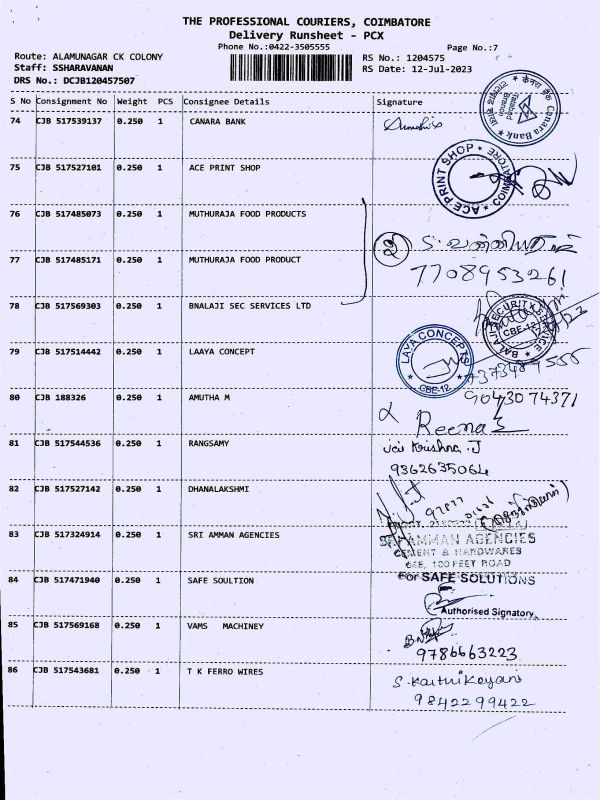 THE PROFESSIONAL COURIERS, COIMBATORE
Delivery Runsheet - PCX
Phone No.:0422-3505555
Page No.:7
Route: ALAMUNAGAR CK COLONY
RS No.: 1204575
Staff: SSHARAVANAN
RS Date: 12-Jul-2023
DRS No.: DCJB120457507
S No Consignment No Weight PCS Consignee Details Signature
74 CJB 517539137 0.250 1 CANARA BANK
Canara Bank
75 CJB 517527101 0.250 1 ACE PRINT SHOP
ACE PRINT SHOP * COIMBATORE *
76 CJB 517485073 0.250 1 MUTHURAJA FOOD PRODUCTS
77 CJB 517485171 0.250 1 MUTHURAJA FOOD PRODUCT
2
7708953261
78 CJB 517569303 0.250 1 BNALAJI SEC SERVICES LTD
CBE-12
79 CJB 517514442 0.250 1 LAAYA CONCEPT
LAYA CONCEPTS * CBE-12 *
80 CJB 188326 0.250 1 AMUTHA M
9043074371
Reena
81 CJB 517544536 0.250 1 RANGSAMY
Jai Krishna .J
9362635064
82 CJB 517527142 0.250 1 DHANALAKSHMI
83 CJB 517324914 0.250 1 SRI AMMAN AGENCIES
SRI AMMAN AGENCIES
CEMENT & HARDWARES
100 FEET ROAD
84 CJB 517471940 0.250 1 SAFE SOULTION
For SAFE SOLUTIONS
Authorised Signatory
85 CJB 517569168 0.250 1 VAMS MACHINEY
9786663223
86 CJB 517543681 0.250 1 T K FERRO WIRES
S. Karthikeyan
9842299422